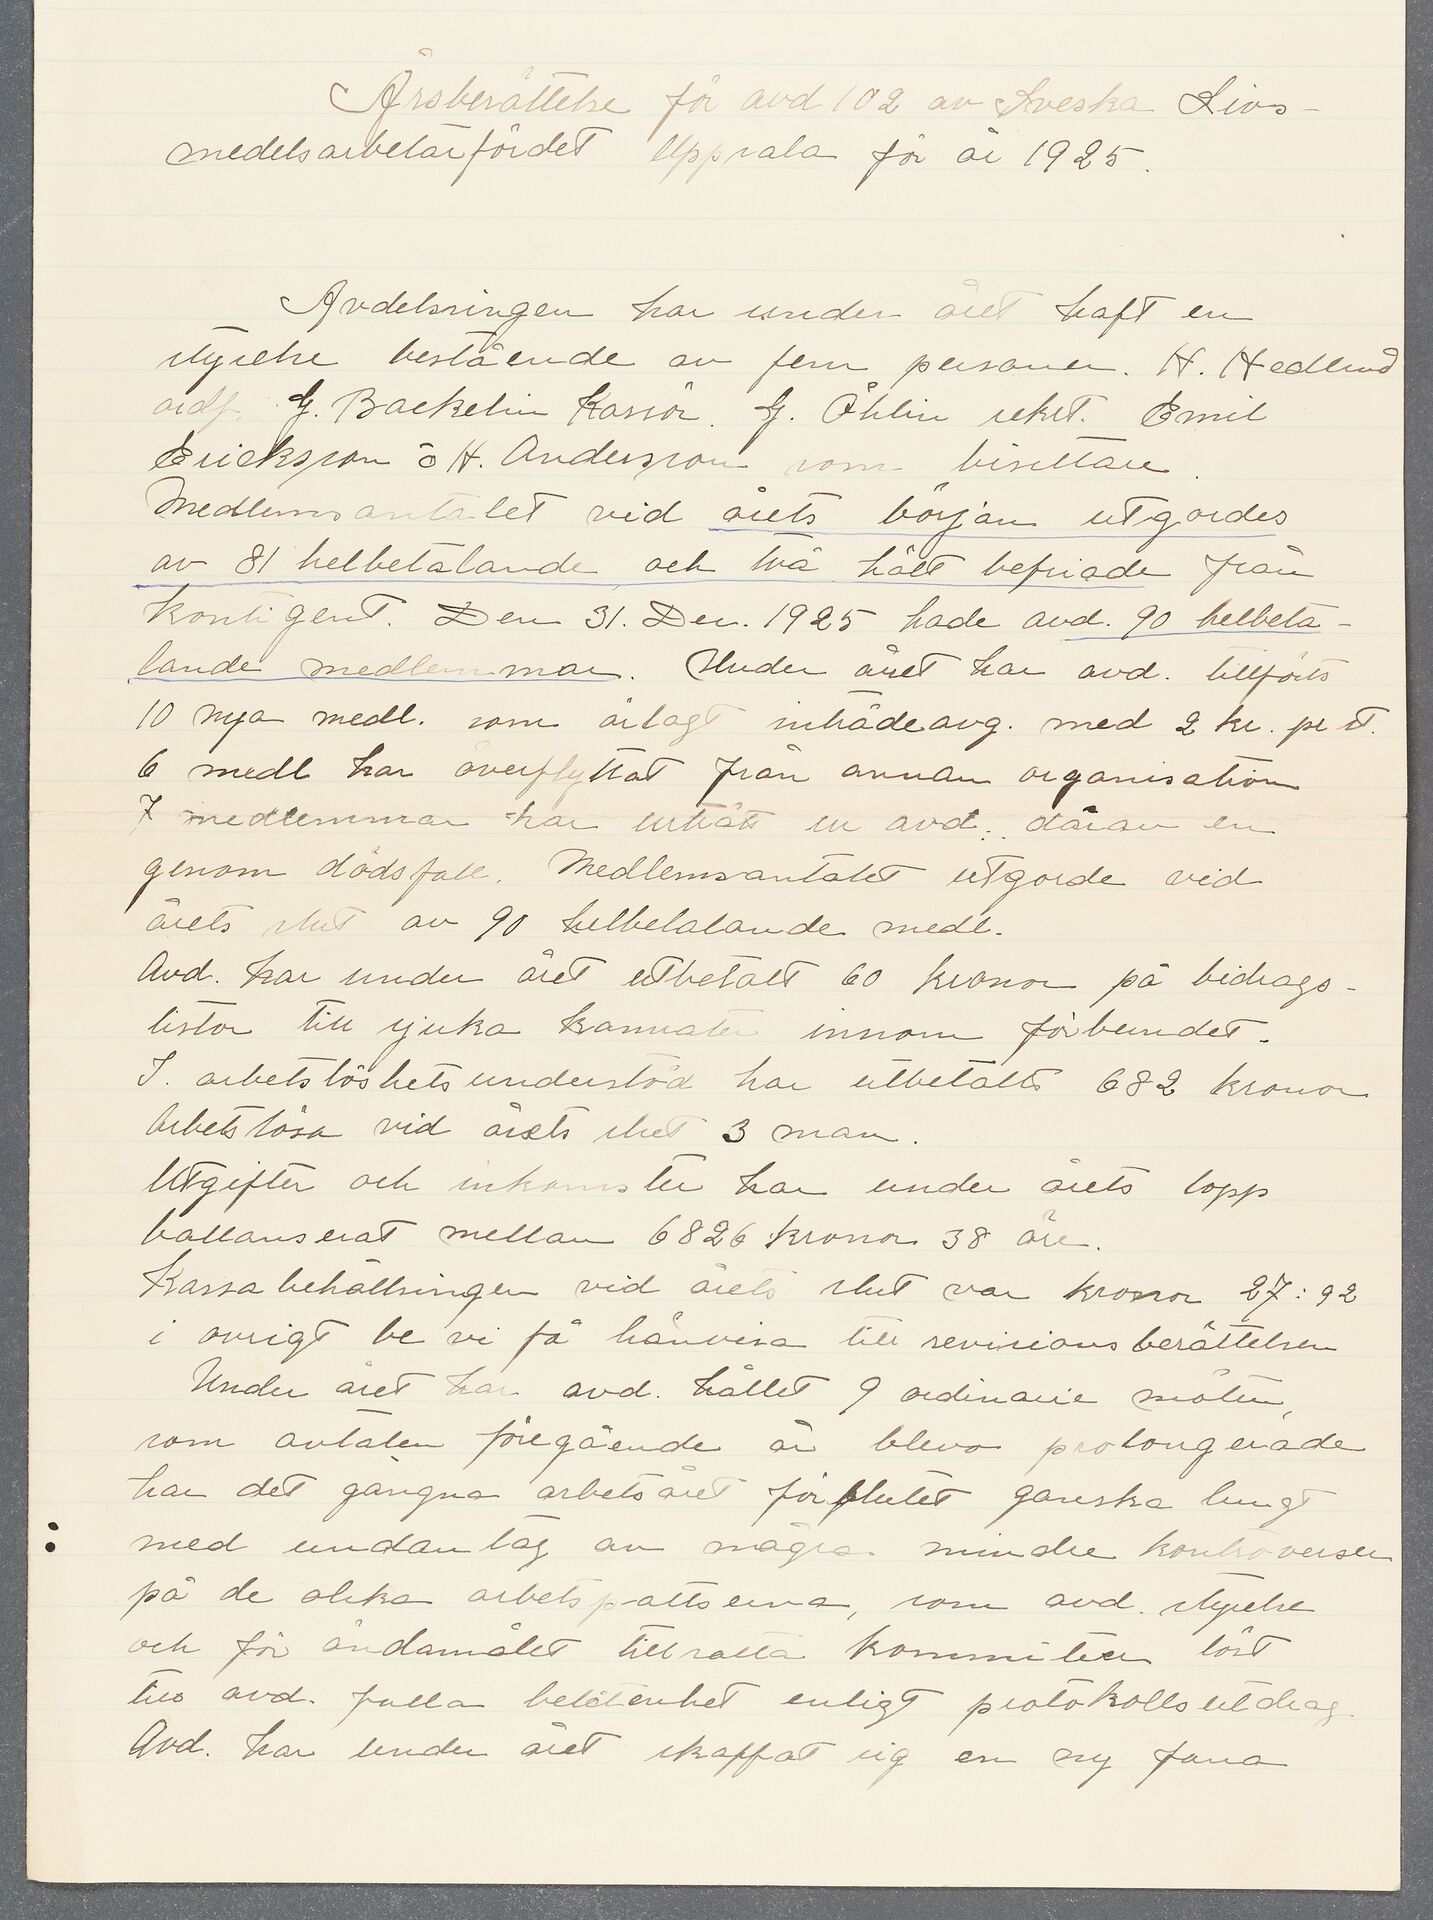 Årsberättelse för avd 102 av Sveska Livs-
medelsarbetarfördet Uppsala för år 1925.
Avdelsningen har under året haft en
styrelse bestående av fem personer. H. Hedlund
ordf. G. Backelin Kassör. G. Öhlin sekrt. Emil
Ericksson o H. Andersson som bisittare.
Medlemsantalet vid årets början utgordes
av 81 helbetalande och två hålt befriade från
kontigent. Den 31. Dec. 1925 hade avd. 90 helbeta-
lande medlemmar. Under året har avd. tillförts
10 nya medl. som ärlagt inträdeavg. med 2 kr. pr st.
6 medl har överflyttat från annan organisation
7 medlemmar har utträtt ur avd. därav en
genom dödsfall. Medlemsantalet utgorde vid
årets slut av 90 helbetalande medl.
Avd. har under året utbetalt 60 kronor på bidrags-
listor till sjuka kamrater innom förbundet.
I. arbetslöshetsunderstöd har utbetalts 682 kronor
Arbetslösa vid årets slut 3 man.
Utgifter och inkomster har under årets lopp
ballanserat mellan 6826 kronor 38 öre.
Kassabehållningen vid årets slut var kronor 27:92
i ovrigt be vi få hänvisa till revisionsberättelsen
Under året har avd. hållet 9 ordinarie möten,
som avtalen föregående år blevo prolongerade
har det gångna arbetsåret förflutet ganska lungt
med undantag av några mindre kontroverser
på de olika arbetsplattserna, som avd. styrelse
och för ändamålet tillsatta kommiteer löst
till avd. fulla belåtenhet enligt protokollsutdrag.
Avd. har under året skaffat sig en ny fana